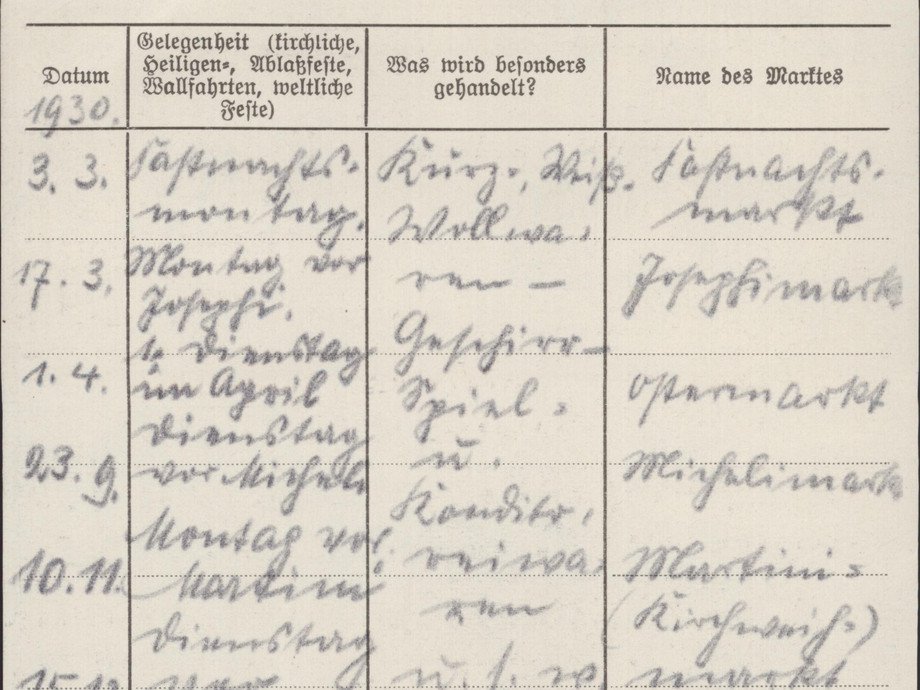 Datum
1930.
Gelegenheit (kirchliche,
Heiligen=, Ablaßfeste,
Wallfahrten, weltliche
Feste)
Was wird besonders
gehandelt?
Name des Marktes
3. 3.
Fastnachts-
montag.
Kurz-, Weiß-
Wollwa-
Fastnachts-
markt
17. 3.
Montag vor
Josephi.
ren –
Josephimarkt
1. 4.
1. Dienstag
im April
Geschirr–
Spiel-
Ostermarkt
23. 9.
Dienstag
vor Micheli
u.
Michelimarkt
10. 11.
Montag vor
Martini
Kondito-
reiwa-
ren
Martini=
(Kirchweih=)
markt
Dienstag
vor
u. s. w.